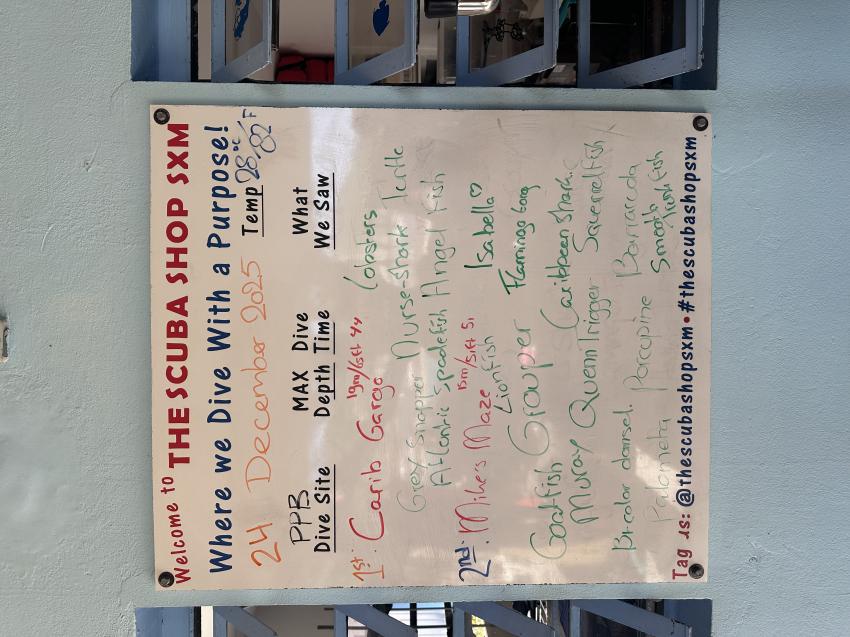 Welcome to THE SCUBA SHOP SXM
Where we Dive With a Purpose!
24 December 2025 Temp 28°C/82°F
PPB MAX Dive What
Dive Site Depth Time We Saw
1st: Carib Cargo 19m/65ft 44 Lobsters
Grey Snapper Nurse-shark Turtle
Atlantic Spadefish Angel Fish
2nd: Mike's Maze 15m/51ft 51 Isabella♡
Lionfish Flamingo tong
Goatfish Grouper Caribbean Shark
Muray Queen Trigger Squerrelfish
Bicolor damsel Barracuda
Palometa Porcupine Smooth
Trunkfish
Tag us: @thescubashopsxm • #thescubashopsxm